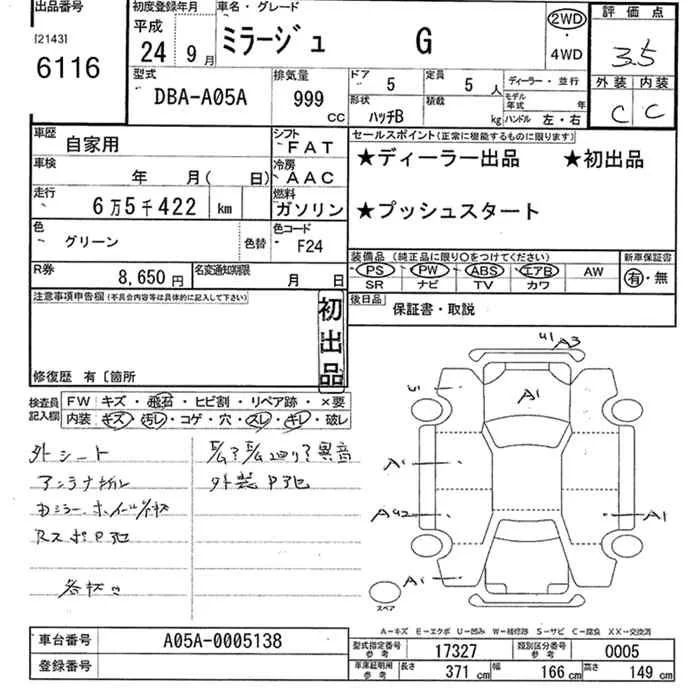 出品番号 初度登録年月 車名・グレード 評価点
[2143] 6116 平成 24 9月 ミラージュ G 2WD・4WD 3.5
型式 排気量 ドア 5 定員 5人 ディーラー・並行 外装 内装
DBA-A05A 999 CC 形状 ハッチB 積載 kg モデル年式 年 ハンドル 左・右 C C
車歴 自家用 シフト FAT セールスポイント(正常に機能するものに限ります)
車検 年 月( 日) 冷房 AAC ★ディーラー出品 ★初出品
走行 6万5千422 km 燃料 ガソリン ★プッシュスタート
色 グリーン 色替 色コード F24
装備品 (純正品に限り○をつけてください) 新車保証書
R券 8,650円 名変通知期限 月 日 PS PW ABS エアB AW 有・無
SR ナビ TV カワ
注意事項申告欄(不具合内容等は具体的に記入して下さい) 初出品 後日品 保証書・取説
修復歴 有〔箇所
検査員記入欄 FW キズ・飛石・ヒビ割・リペア跡・×要
内装 キズ・汚レ・コゲ・穴・スレ・キレ・破レ
外シート
アンテナ
Rスポ
外装
異音
U1 A3
U1 A1
A1
AU2 A1
A1
スペア
A-キズ E-エクボ U-凹み W-補修跡 S-サビ C-腐食 XX-交換済
車台番号 A05A-0005138 型式指定番号 参考 17327 類別区分番号 参考 0005
登録番号 車庫証明用 参考 長さ 371 cm 幅 166 cm 高さ 149 cm